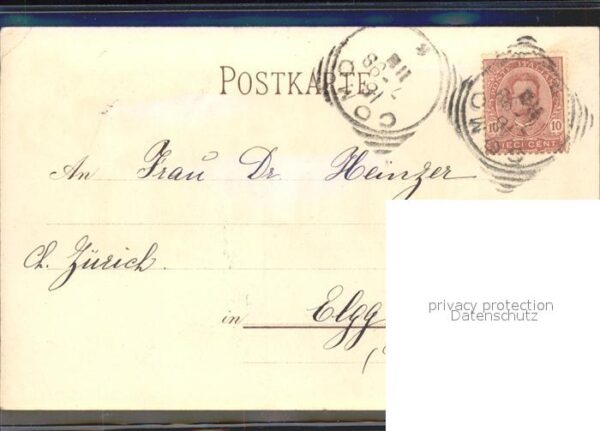 POSTKARTE
COMO
POSTE ITALIANE
10 10
DIECI CENT
COMO
An Frau Dr. Heinzer
Ct. Zürich.
in Elgg
(
privacy protection
Datenschutz